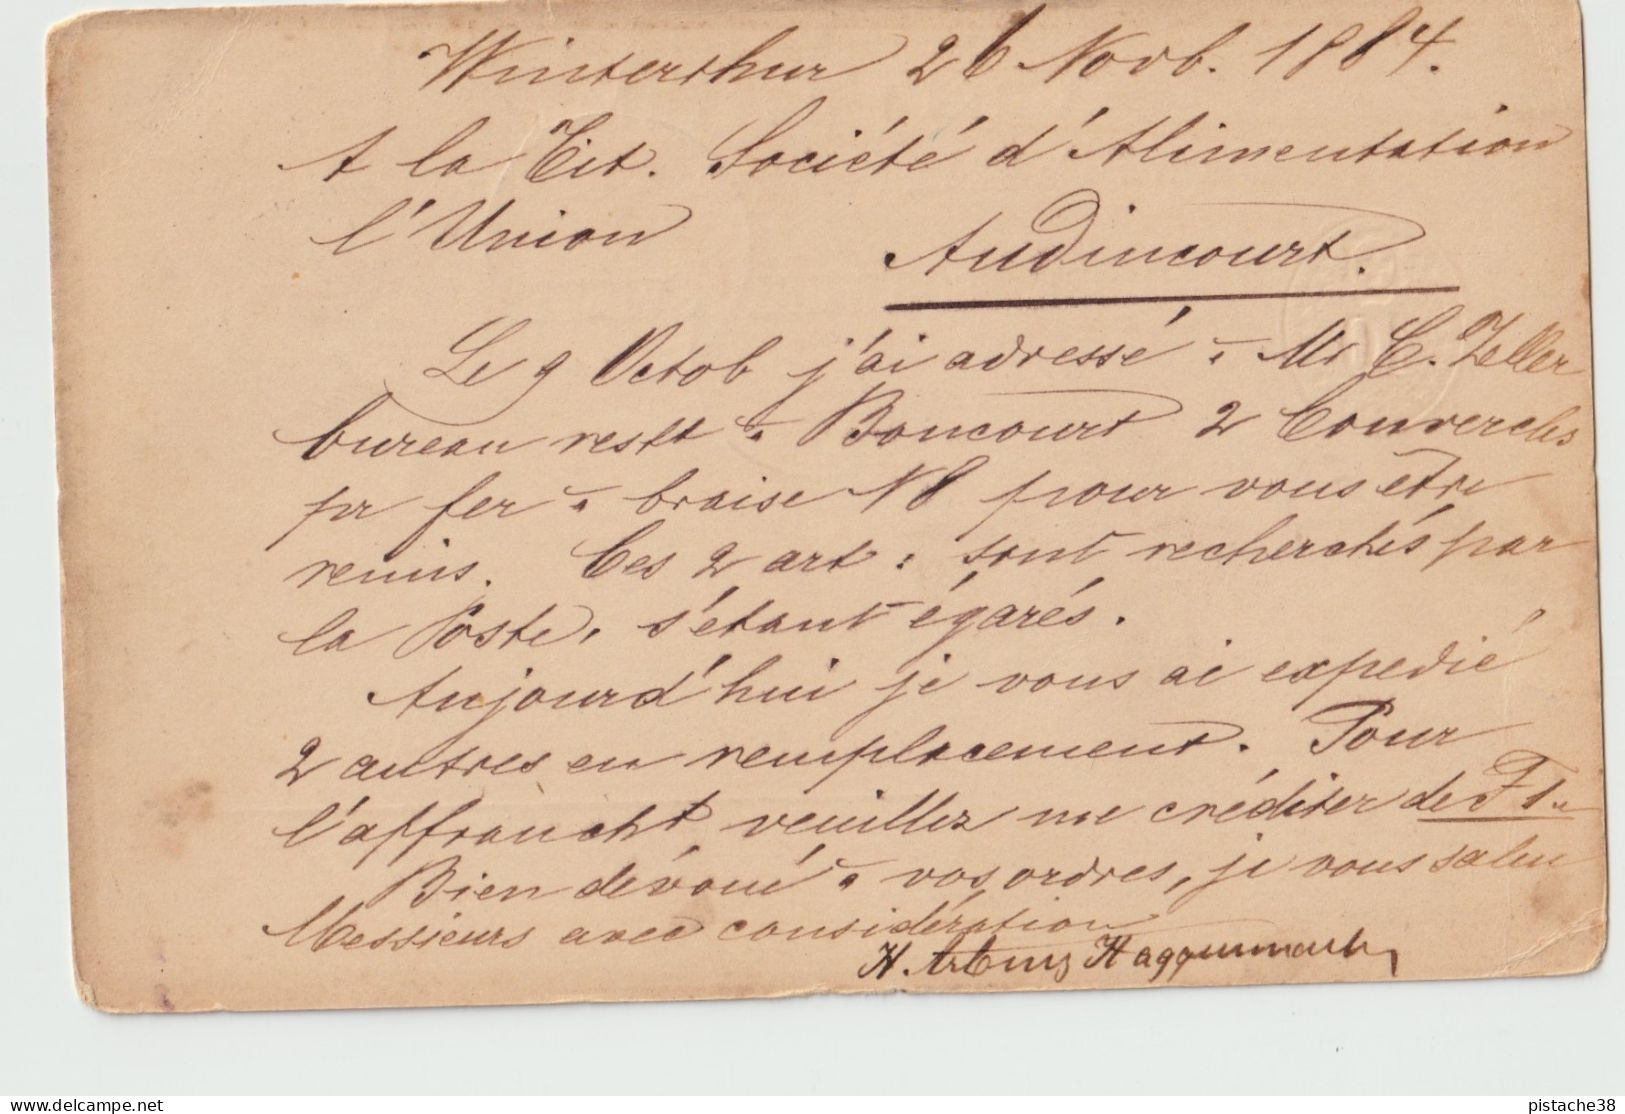 Winterthur 26 Novb. 1884.
A la Tit. Société d'Alimentation
l'Union Audincourt.
Le 9 Octob j'ai adressé à Mr C. Zeller
bureau restt à Boncourt 2 Couvercles
pr fer à braise N 8 pour vous être
remis. Ces 2 art: sont recherchés par
la Poste, s'étant égarés.
Aujourd'hui je vous ai expedié
2 autres en remplacement. Pour
l'affrancht veuillez me créditer de F 1.-
Bien dévoué à vos ordres, je vous salue
Messieurs avec considération
H.
delcampe.net
pistache38